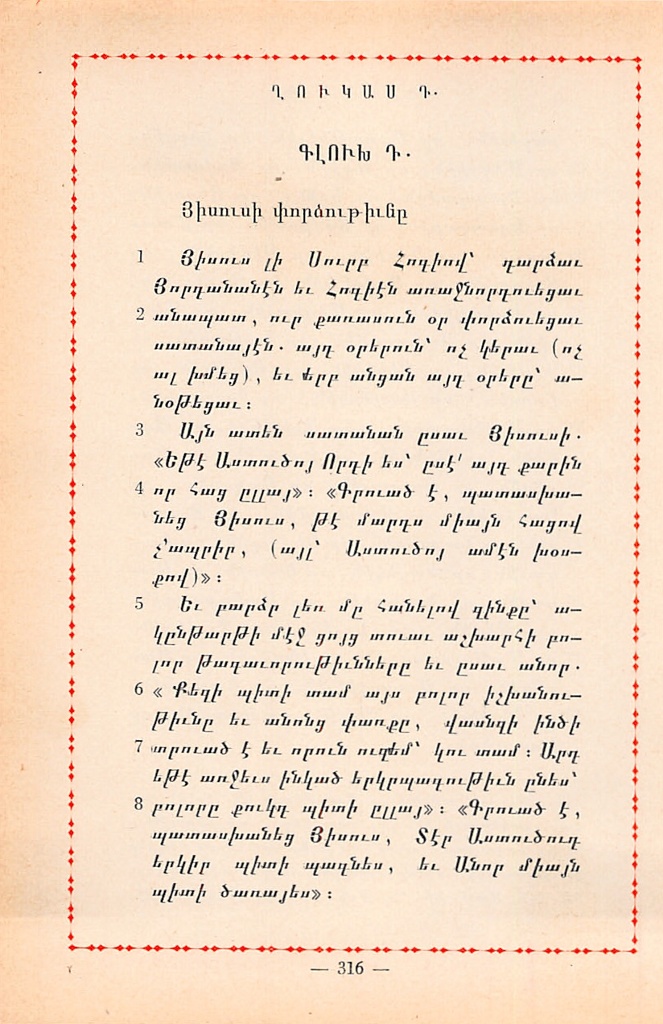 ՂՈՒԿԱՍ Դ.
ԳԼՈՒԽ Դ.
Յիսուսի փորձութիւնը
1 Յիսուս լի Սուրբ Հոգիով՝ դարձաւ
Յորդանանէն եւ Հոգիէն առաջնորդուեցաւ
2 անապատ, ուր քառասուն օր փորձուեցաւ
սատանայէն. այդ օրերուն՝ ոչ կերաւ (ոչ
ալ խմեց), եւ երբ անցան այդ օրերը՝ ա-
նօթեցաւ:
3 Այն ատեն սատանան ըսաւ Յիսուսի.
«Եթէ Աստուծոյ Որդի ես՝ ըսէ՛ այդ քարին
4 որ հաց ըլլայ»: «Գրուած է, պատասխա-
նեց Յիսուս, թէ մարդս միայն հացով
չ՚ապրիր, (այլ՝ Աստուծոյ ամէն խօս-
քով)»:
5 Եւ բարձր լեռ մը հանելով զինքը՝ ա-
կընթարթի մէջ ցոյց տուաւ աշխարհի բո-
լոր թագաւորութիւնները եւ ըսաւ անոր.
6 « Քեզի պիտի տամ այս բոլոր իշխանու-
թիւնը եւ անոնց փառքը, վասնզի ինծի
7 տրուած է եւ որուն ուզեմ՝ կու տամ: Արդ
եթէ առջեւս ինկած երկրպագութիւն ընես՝
8 բոլորը քուկդ պիտի ըլլայ»: «Գրուած է,
պատասխանեց Յիսուս, Տէր Աստուծուդ
երկիր պիտի պագնես, եւ Անոր միայն
պիտի ծառայես»:
— 316 —